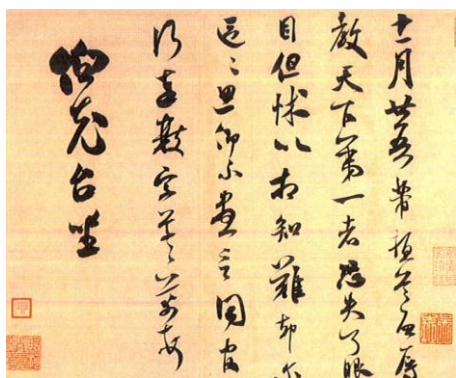 十一月廿五日芾頓首啓辱
教天下第一者恐失了眼
目但怵以相知難却尔
區〻思仰不盡言同官
行奉數字草〻芾頓首
伯充台坐